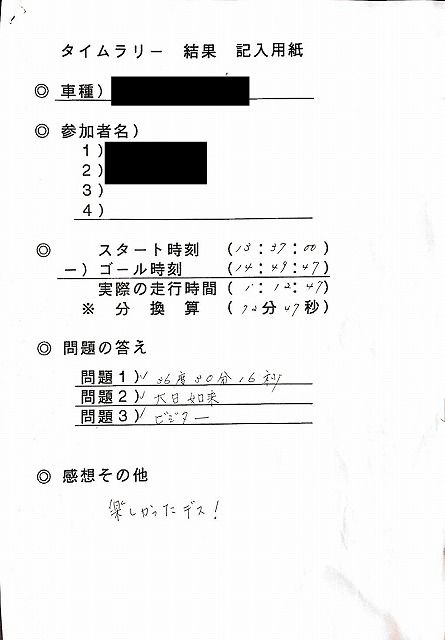 タイムラリー 結果 記入用紙
◎ 車種)
◎ 参加者名)
1)
2)
3)
4)
◎ スタート時刻 (13:37:00)
ー) ゴール時刻 (14:49:47)
実際の走行時間 (1:12:47)
※ 分 換 算 (72分47秒)
◎ 問題の答え
問題1) 36度30分16秒
問題2) 大日如来
問題3) ビジター
◎ 感想その他
楽しかったデス!